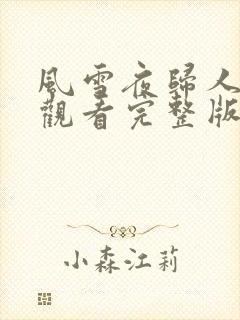 風雪夜歸人
觀看完整版
小森江莉